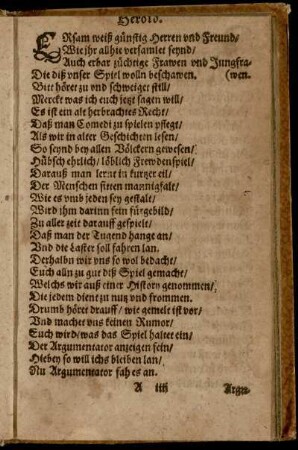 Herold.
ERsam weiß günstig Herren vnd Freund/
Wie jhr allhie versamlet seynd/
Auch erbar züchtige Frawen vnd Jungfra-
Die diß vnser Spiel wolln beschawen. (wen.
Bitt höret zu vnd schweiget still/
Merckt was ich euch jetzt sagen will/
Es ist ein alt herbrachtes Recht/
Daß man Comedi zu spielen pflegt/
Als wir in alter Geschichten lesen/
So seynd bey allen Völckern gewesen/
Hübsch ehrlich/ löblich Frewdenspiel/
Darauß man lernt in kurtzer eil/
Der Menschen sitten mannigfalt/
Wie es vmb jeden sey gestalt/
Wird jhm darinn fein fürgebild/
Zu aller zeit darauff gespielt/
Daß man der Tugend hange an/
Vnd die Laster soll fahren lan.
Derhalbn wir vns so wol bedacht/
Euch alln zu gut diß Spiel gemacht/
Welchs wir auß einer History genommen/
Die jedem dient zu nutz vnd frommen.
Drumb höret drauff/ wie gemelt ist vor/
Vnd machet vns keinen Rumor/
Euch wird/ was das Spiel haltet ein/
Der Argumentator anzeigen fein/
Hiebey so will ichs bleiben lan/
Nu Argumentator fah es an.
A iiij Argu-